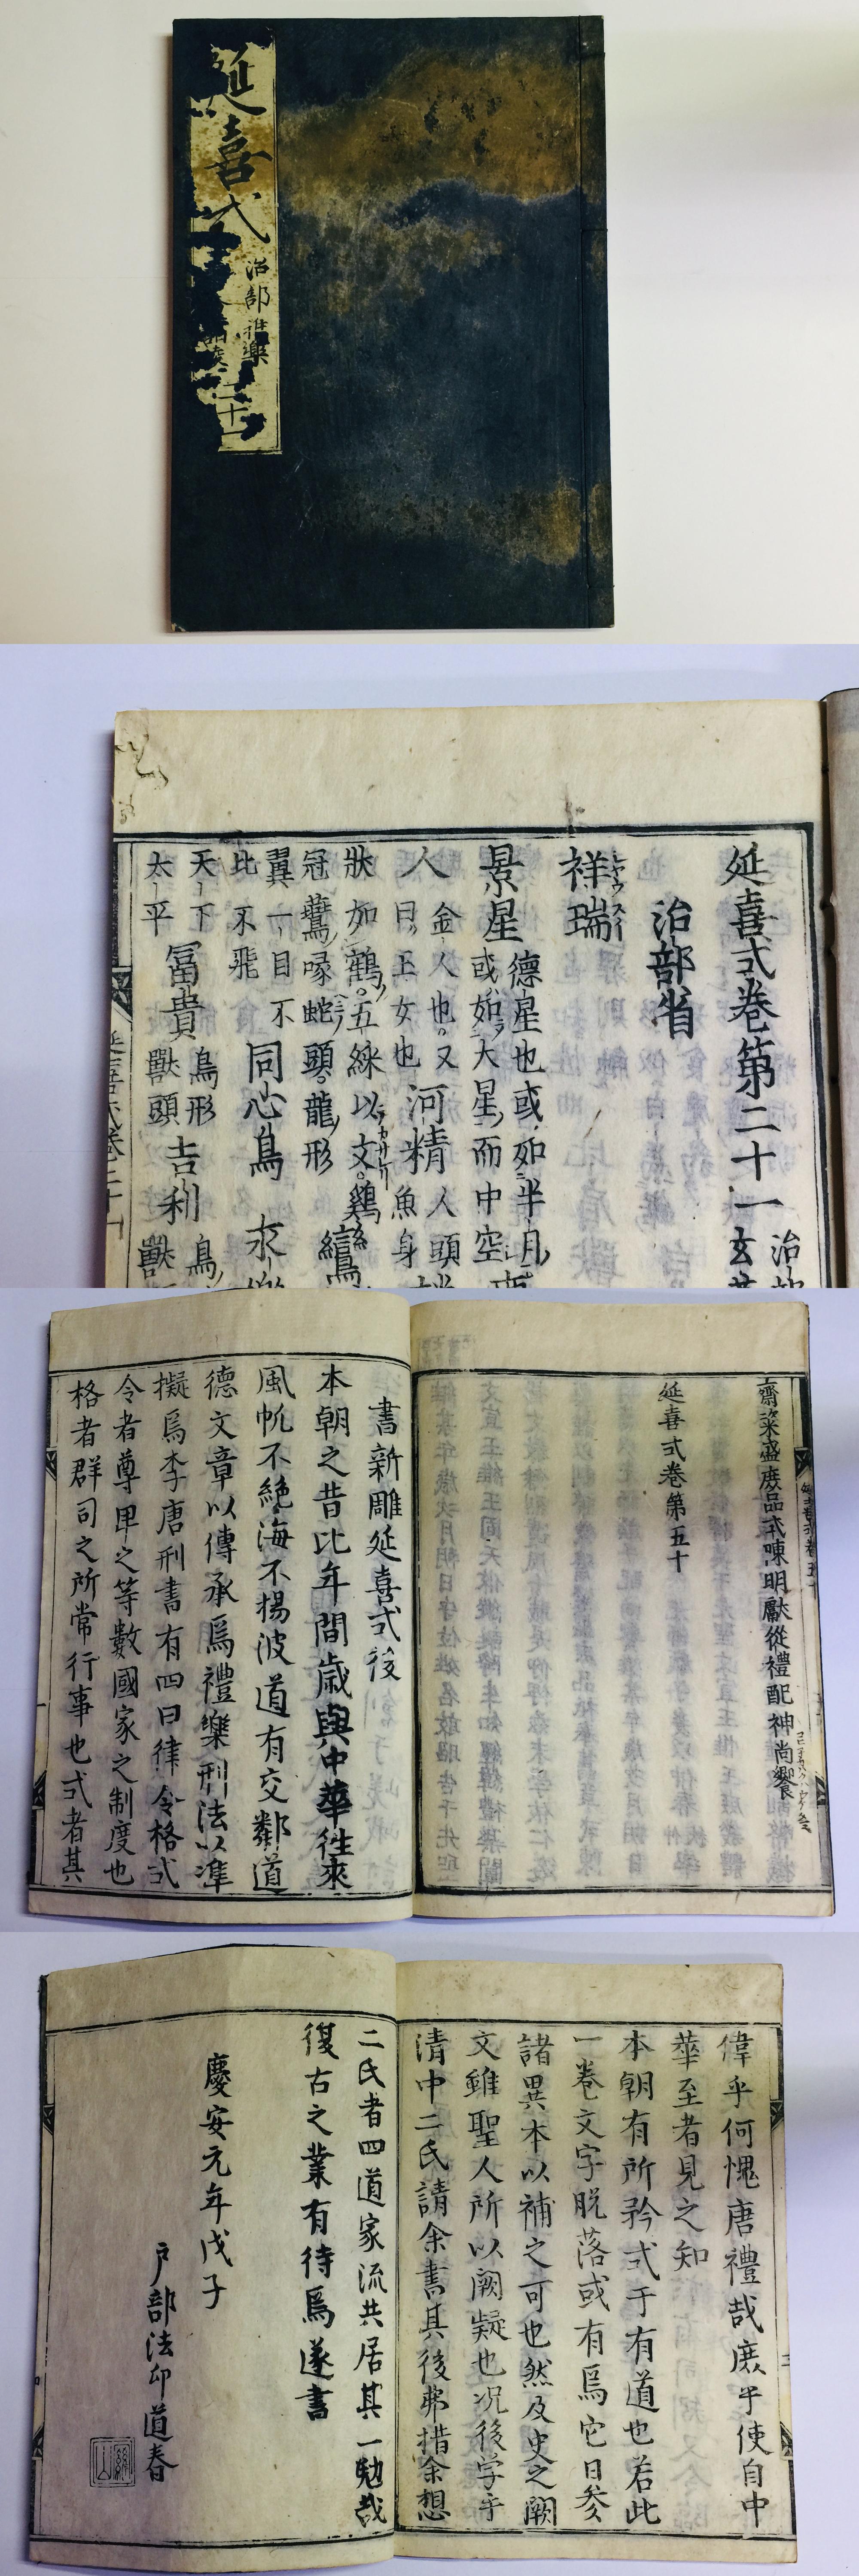 延喜式
治部 雅樂
二十一
延喜式卷第二十一
治部省
祥瑞
景星
德星也或如半月
或如大星而中空
人
金人也又
曰玉女也
河精
人頭
魚身
狀如鶴五綵以文鷄
冠鸞喙蛇頭龍形
鸞
翼一目不
比不飛
同心鳥
永樂
天下
太平
冨貴
鳥形
獸頭
吉利
鳥
獸
齋粢盛庶品式陳明獻從禮配神尚饗
延喜式卷第五十
書新雕延喜式後
本朝之昔比年間歲與中華徃來
風帆不絶海不揚波道有交鄰道
德文章以傳承爲禮樂刑法以準
擬爲李唐刑書有四曰律令格式
令者尊卑之等數國家之制度也
格者群司之所常行事也式者其
偉乎何愧唐禮哉庶乎使自中
華至者見之知
本朝有所矜式于有道也若此
一卷文字脱落或有爲它日參
諸異本以補之可也然及史之闕
文雖聖人所以闕疑也况後学乎
清中二氏請余書其後弗措余想
二氏者四道家流共居其一勉哉
復古之業有待爲遂書
慶安元年戊子
戶部法印道春